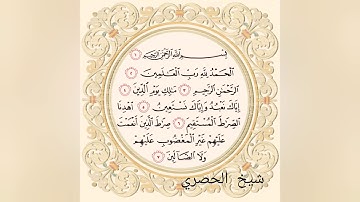 بِسْمِ ٱللَّهِ ٱلرَّحْمَٰنِ ٱلرَّحِيمِ ١
ٱلْحَمْدُ لِلَّهِ رَبِّ ٱلْعَٰلَمِينَ ٢
ٱلرَّحْمَٰنِ ٱلرَّحِيمِ ٣ مَٰلِكِ يَوْمِ ٱلدِّينِ ٤
إِيَّاكَ نَعْبُدُ وَإِيَّاكَ نَسْتَعِينُ ٥ ٱهْدِنَا
ٱلصِّرَٰطَ ٱلْمُسْتَقِيمَ ٦ صِرَٰطَ ٱلَّذِينَ أَنْعَمْتَ
عَلَيْهِمْ غَيْرِ ٱلْمَغْضُوبِ عَلَيْهِمْ
وَلَا ٱلضَّآلِّينَ ٧
شيخ الحصري